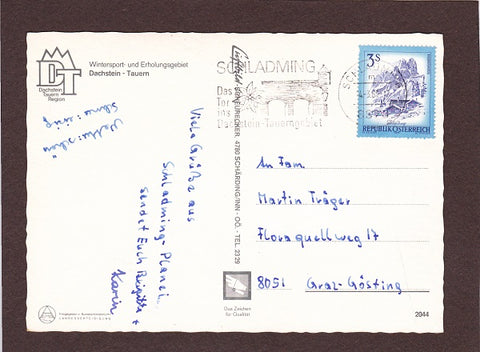 DT
Dachstein
Tauern
Region
Wintersport- und Erholungsgebiet
Dachstein - Tauern
SCHLADMING
Das
Tor
ins
Dachstein-Tauerngebiet
3s
REPUBLIK ÖSTERREICH
4780 SCHÄRDING/INN - OÖ. - TEL. 2329
Viele Grüße aus
Schladming-Planei
sendet Euch Brigitte +
Karin
An Fam
Martin Träger
Floraquellweg 17
8051 Graz-Gösting
Das Zeichen
für Qualität
2044